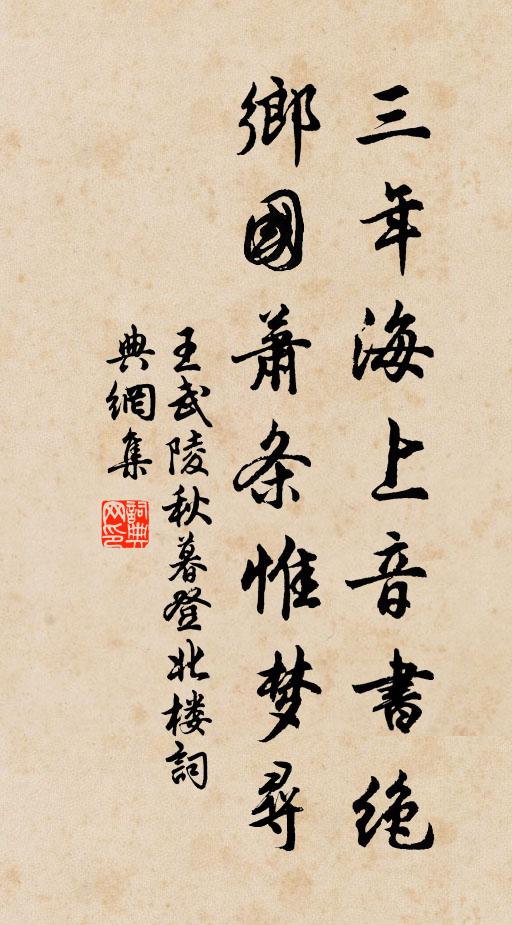 三年海上音書绝
鄉國蕭条惟梦尋
王武陵秋暮登北楼詞
典網集
詞典网印